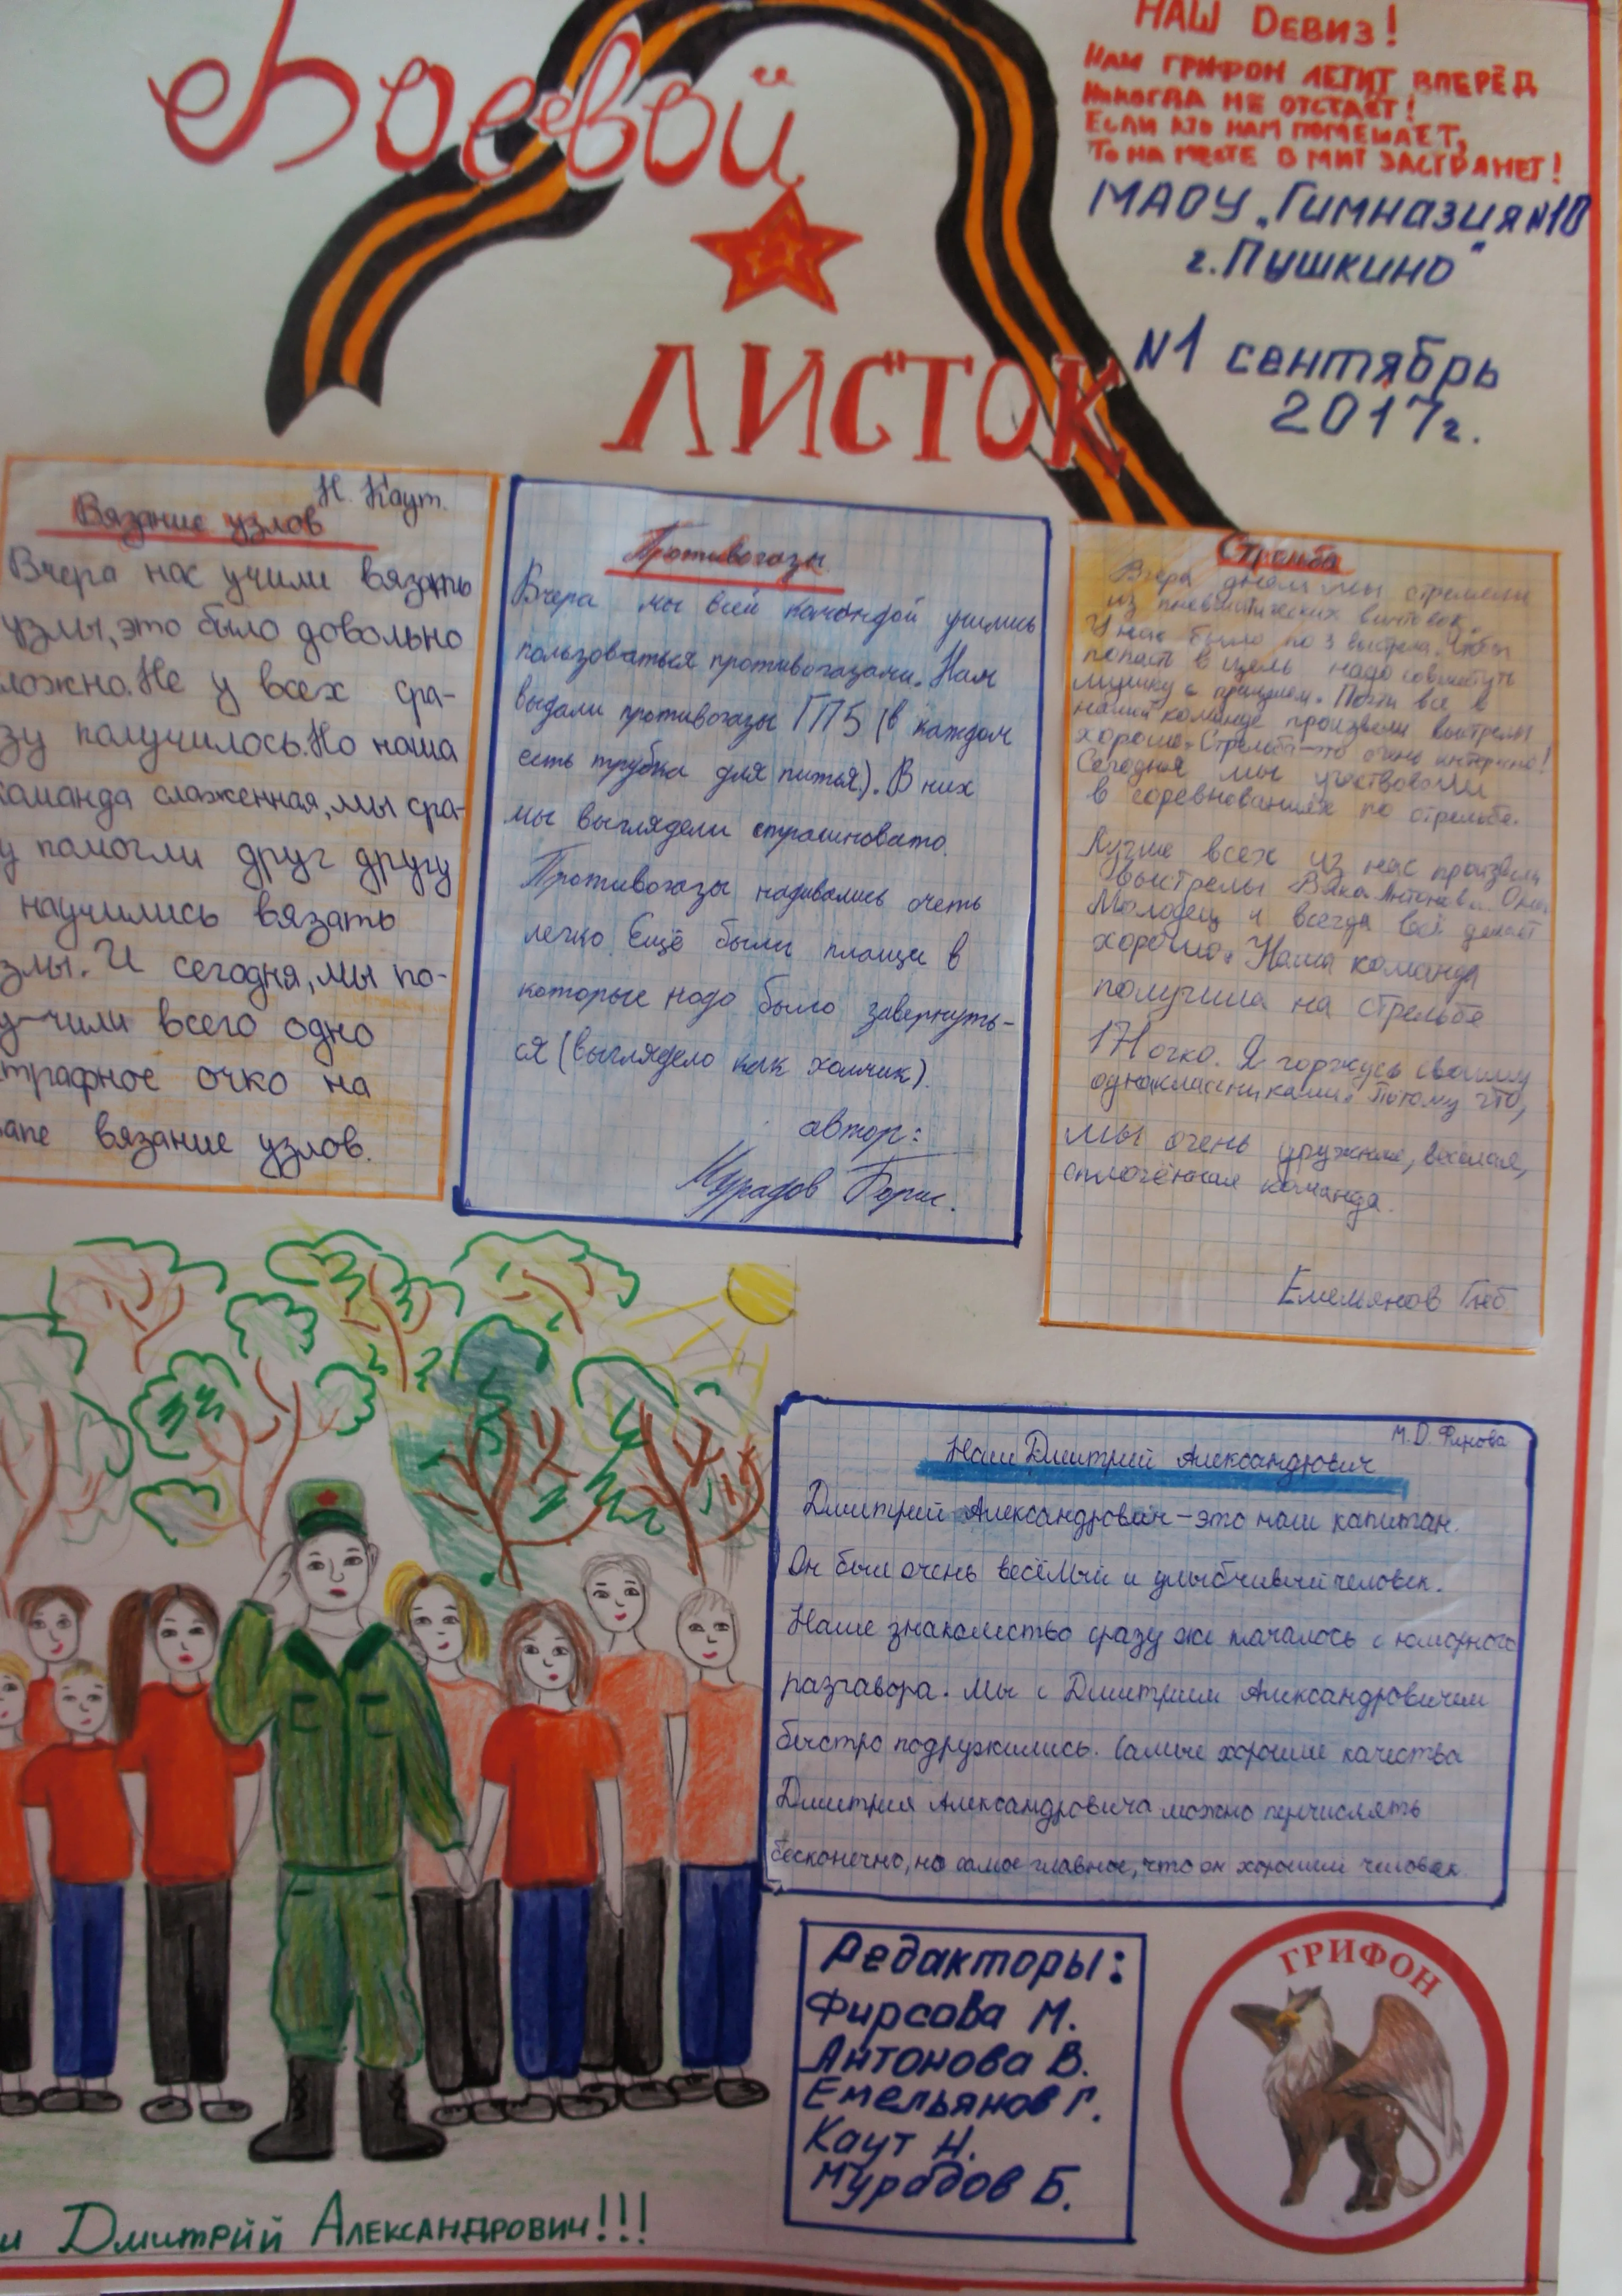 Боевой
ЛИСТОК
НАШ ДЕВИЗ!
НАШ ГРИФОН ЛЕТИТ ВПЕРЁД
НИКОГДА НЕ ОТСТАЁТ!
ЕСЛИ КТО НАМ ПОМЕШАЕТ,
ТО НА МЕСТЕ В МИГ ЗАСТРЯНЕТ!
МАОУ „Гимназия №10
г. Пушкино"
№1 сентябрь
2017г.
Н. Каут.
Вязание узлов
Вчера нас учили вязать
узлы, это было довольно
ложно. Не у всех сра-
зу получилось. Но наша
команда слаженная, мы сра-
у помогли друг другу
научились вязать
злы. И сегодня, мы по-
у-чили всего одно
трафное очко на
апе вязание узлов.
Противогазы.
Вчера мы всей командой учились
пользоваться противогазами. Нам
выдали противогазы ГП5 (в каждом
есть трубка для питья). В них
мы выглядели страшновато.
Противогазы надевались очень
легко. Ещё были плащи в
которые надо было завернуть-
ся (выглядело как холмик).
автор:
Мурадов Борис.
Стрельба
Вчера днём мы стреляли
из пневматических винтовок.
У нас было по 3 выстрела. Чтобы
попасть в цель надо совместить
мушку с прицелом. Почти все в
нашей команде произвели выстрелы
хорошо. Стрельба-это очень интересно!
Сегодня мы участвовали
в соревнованиях по стрельбе.
Лучше всех из нас произвела
выстрелы Вика Антонова. Она
молодец и всегда всё делает
хорошо. Наша команда
получила на стрельбе
171 очко. Я горжусь своими
одноклассниками. Потому что,
мы очень дружные, весёлая,
сплочённая команда.
Емельянов Глеб
М.D.
Наш Дмитрий Александрович
Дмитрий Александрович - это наш капитан.
Он был очень весёлый и улыбчивый человек.
Наше знакомство сразу же началось с юморного
разгавора. Мы с Дмитрием Александровичем
быстро подружились. Самые хорошие качества
Дмитрия Александровича можно перчислять
бесконечно, но самое главное, что он хороший человек.
Редакторы:
Фирсова М.
Антонова В.
Емельянов Г.
Каут Н.
Мурадов Б.
ГРИФОН
и Дмитрий Александрович!!!